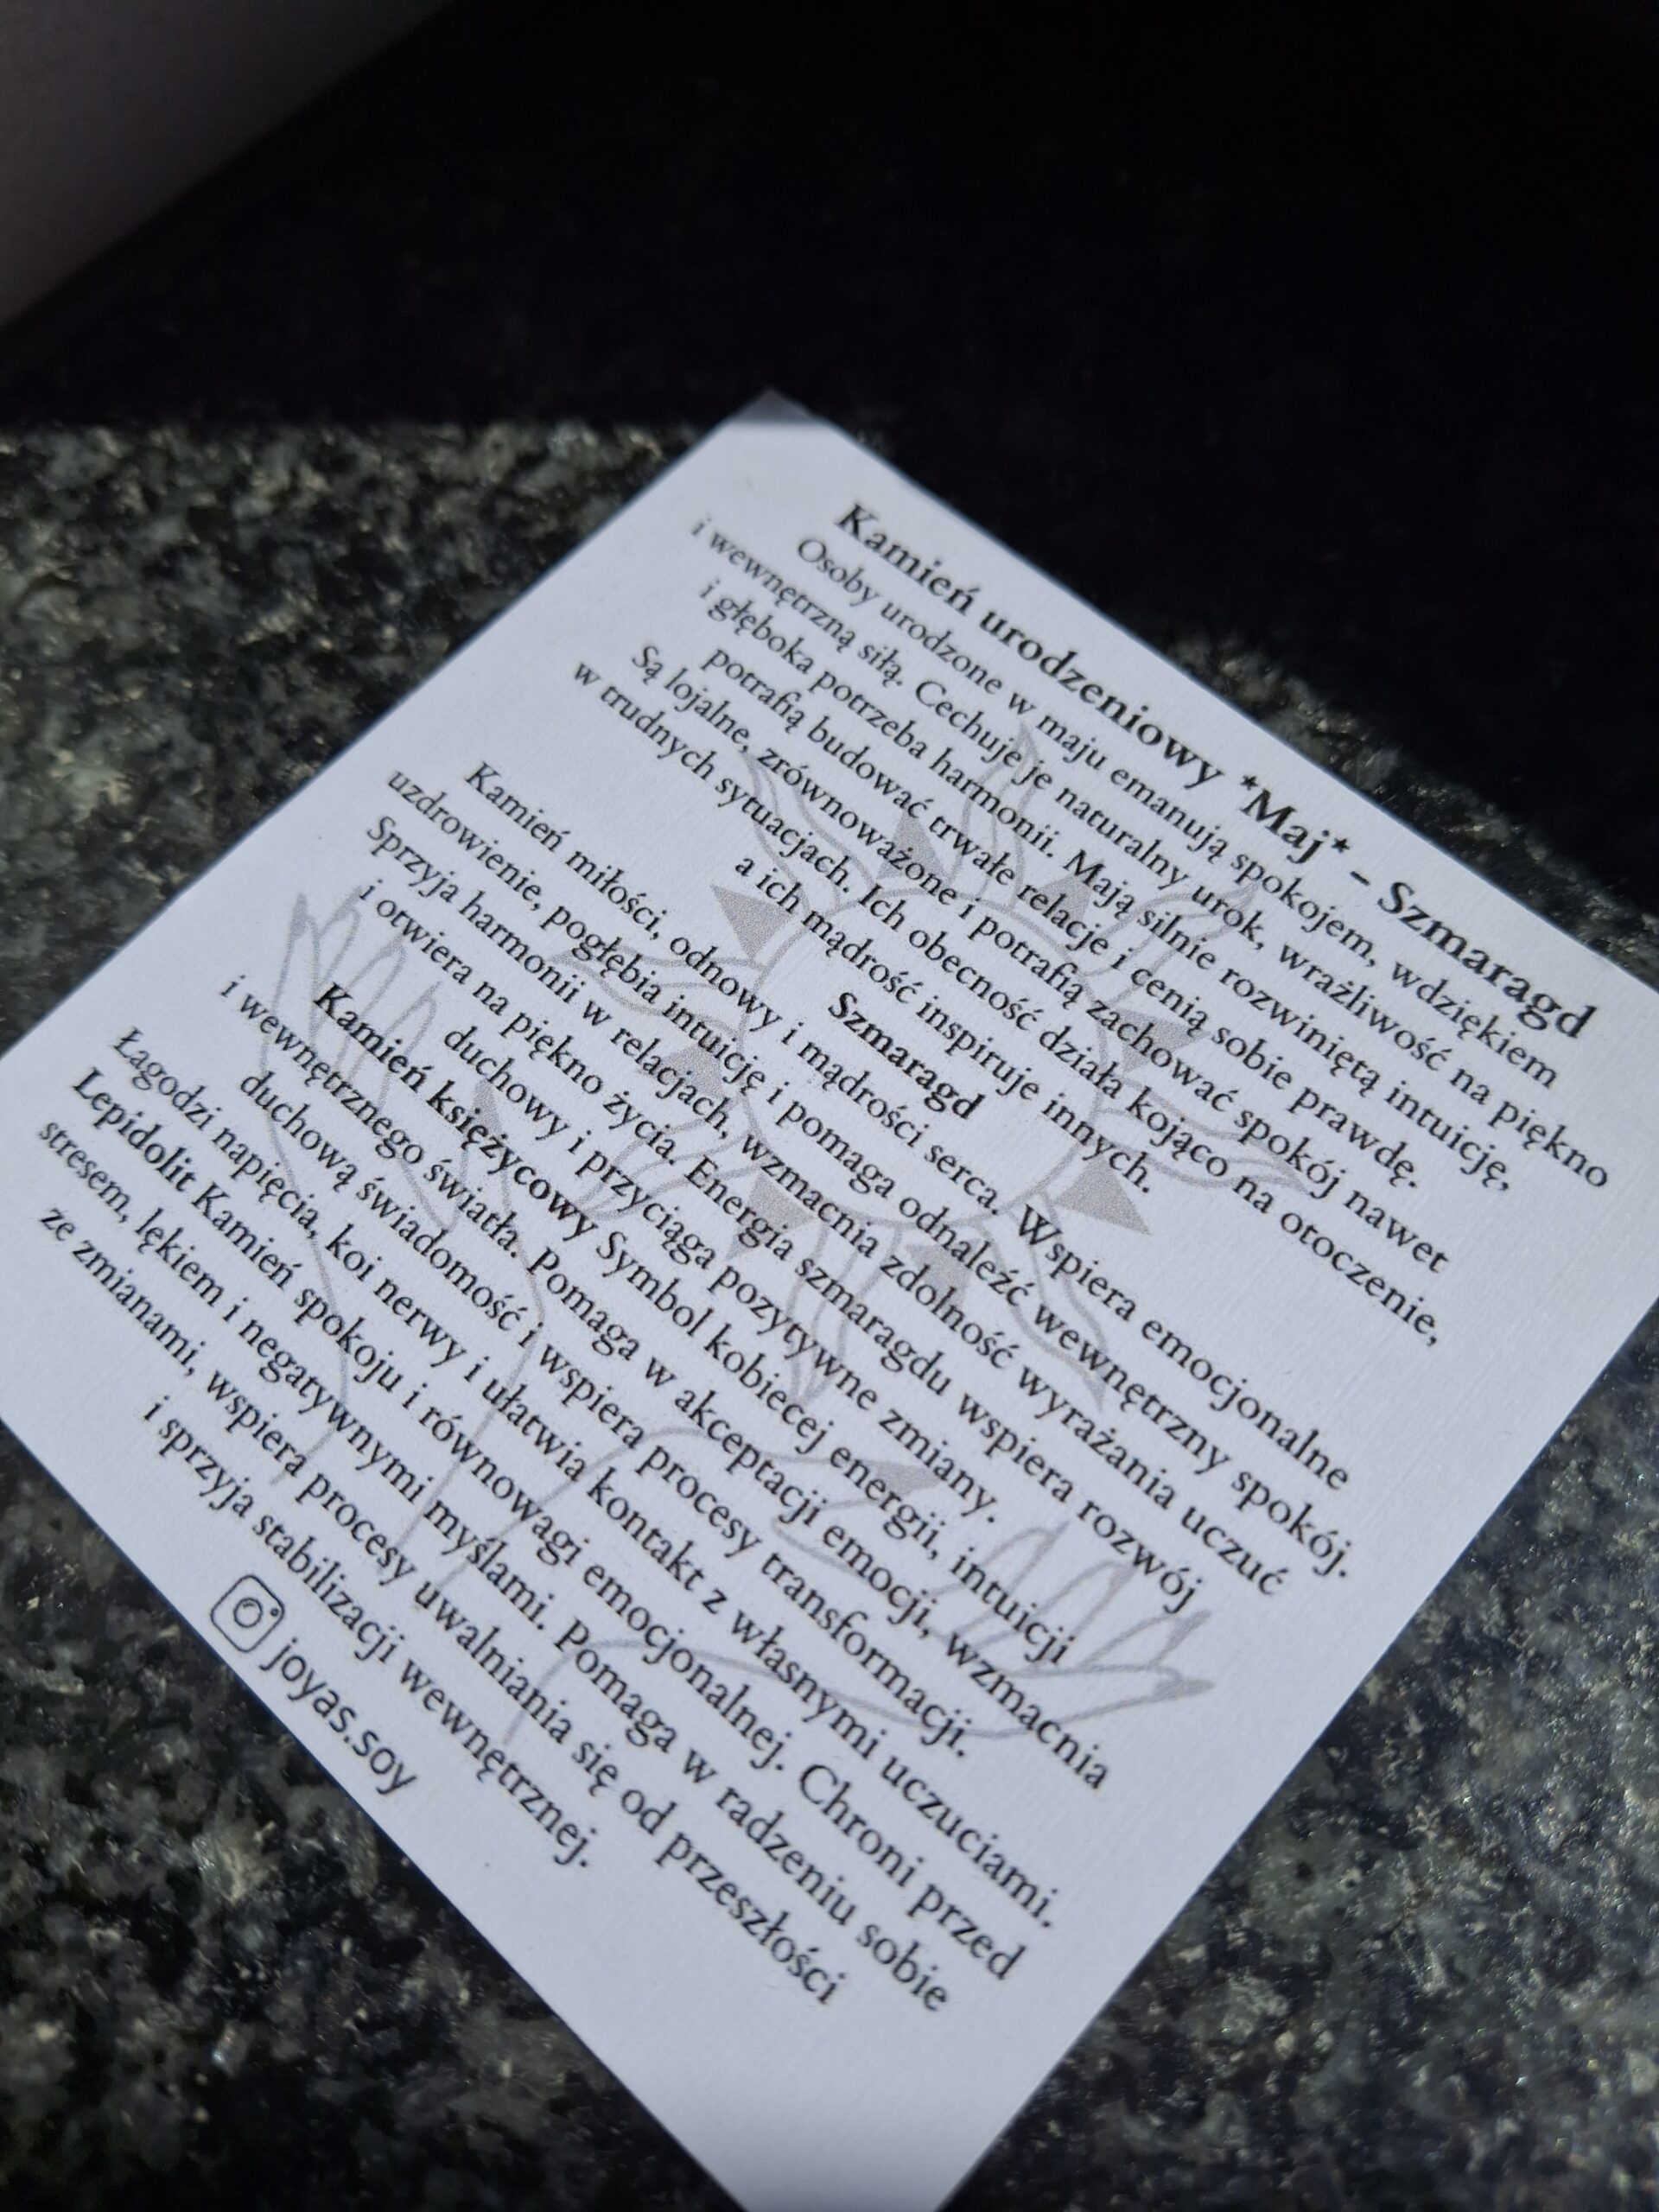 Kamień urodzeniowy *Maj* – Szmaragd
Osoby urodzone w maju emanują spokojem, wdziękiem
i wewnętrzną siłą. Cechuje je naturalny urok, wrażliwość na piękno
i głęboka potrzeba harmonii. Mają silnie rozwiniętą intuicję,
potrafią budować trwałe relacje i cenią sobie prawdę.
Są lojalne, zrównoważone i potrafią zachować spokój nawet
w trudnych sytuacjach. Ich obecność działa kojąco na otoczenie,
a ich mądrość inspiruje innych.
Szmaragd
Kamień miłości, odnowy i mądrości serca. Wspiera emocjonalne
uzdrowienie, pogłębia intuicję i pomaga odnaleźć wewnętrzny spokój.
Sprzyja harmonii w relacjach, wzmacnia zdolność wyrażania uczuć
i otwiera na piękno życia. Energia szmaragdu wspiera rozwój
duchowy i przyciąga pozytywne zmiany.
Kamień księżycowy Symbol kobiecej energii, intuicji
i wewnętrznego światła. Pomaga w akceptacji emocji, wzmacnia
duchową świadomość i wspiera procesy transformacji.
Łagodzi napięcia, koi nerwy i ułatwia kontakt z własnymi uczuciami.
Lepidolit Kamień spokoju i równowagi emocjonalnej. Chroni przed
stresem, lękiem i negatywnymi myślami. Pomaga w radzeniu sobie
ze zmianami, wspiera procesy uwalniania się od przeszłości
i sprzyja stabilizacji wewnętrznej.
joyas.soy